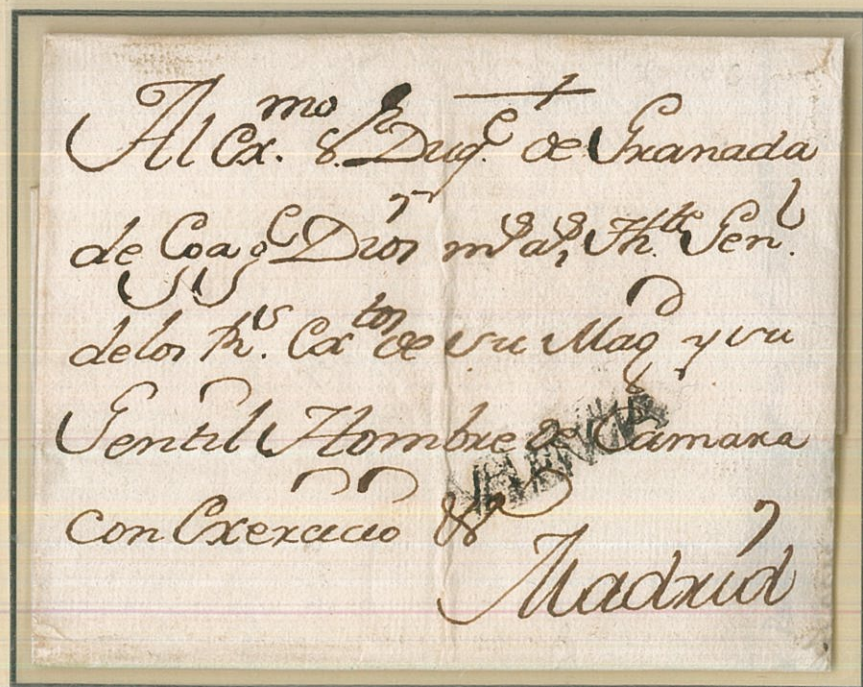 Al Ex.mo S.r Duq.e de Granada
de Ega g.e Dios m.s a.s Th.te Gen.l
delos R.s Extos de su Mag y su
Gentil Hombre de Camara
VALENCIA
con Exercicio &
Madrid